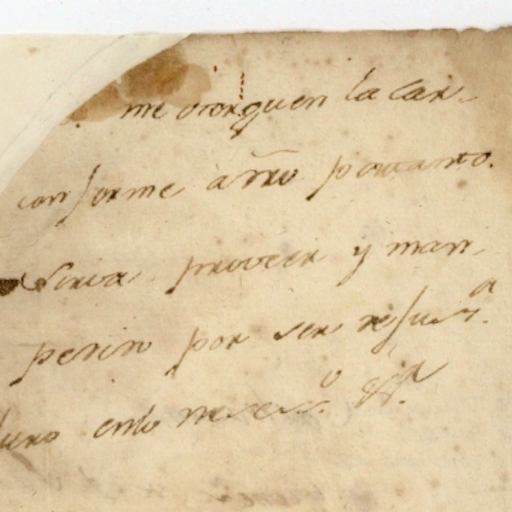 me otorguen la Car-
conforme a dro portanto.
Sirva proveer y man
pedirn por ser de Just.ª
Juro en lo neses.º &.ª